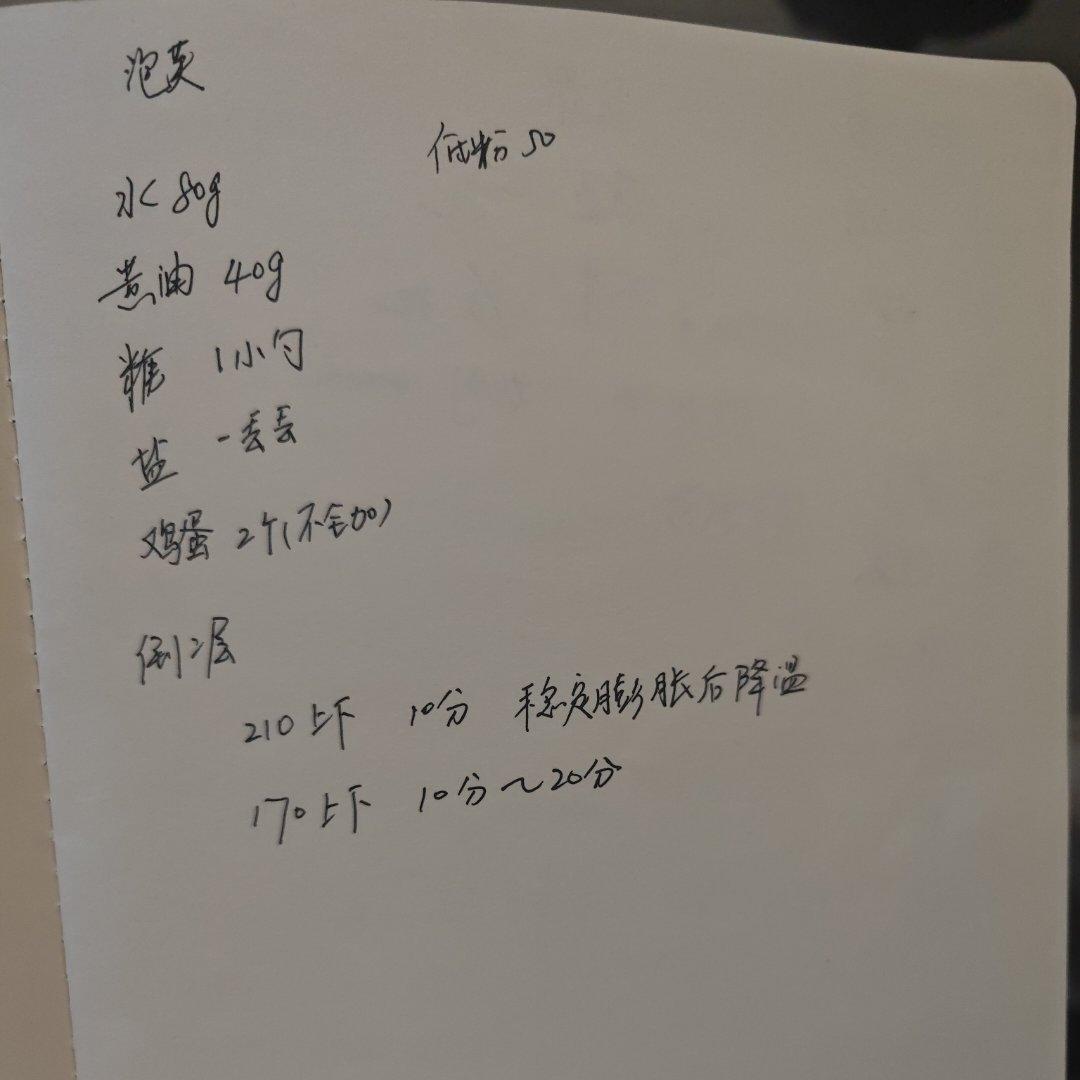 泡芙
低粉 50
水 80g
黄油 40g
糖 1小勺
盐 一丢丢
鸡蛋 2个(不全加)
倒二层
210上下 10分 稳定膨胀后降温
170上下 10分～20分